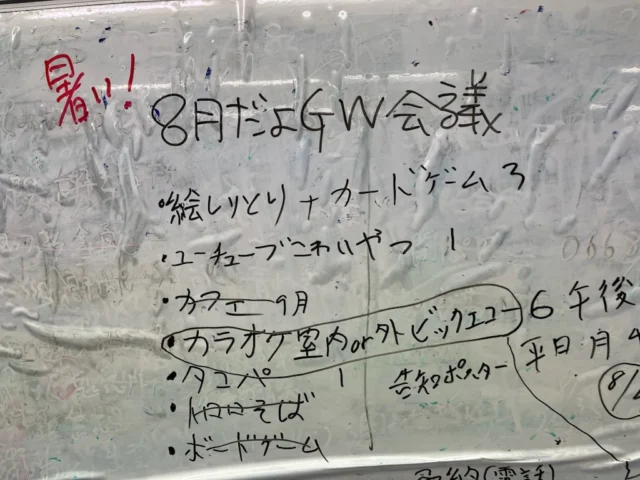 暑い!
8月だよGW会議
・絵しりとり+カードゲーム 3
・ユーチューブこわいやつ 1
・カフェ 9月
・カラオケ室内or外ビックエコー 6 午後
平日 月
・タコパ 1
告知ポスター
8/
・トロロそば
・ボードゲーム
予約(電話)